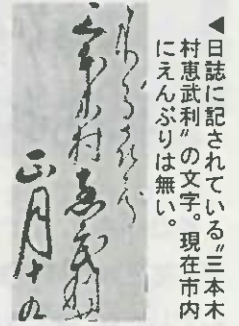 ◀日誌に記されている〝三本木
村恵武利〟の文字。現在市内
にえんぶりは無い。
三本木村恵武利
正月十九